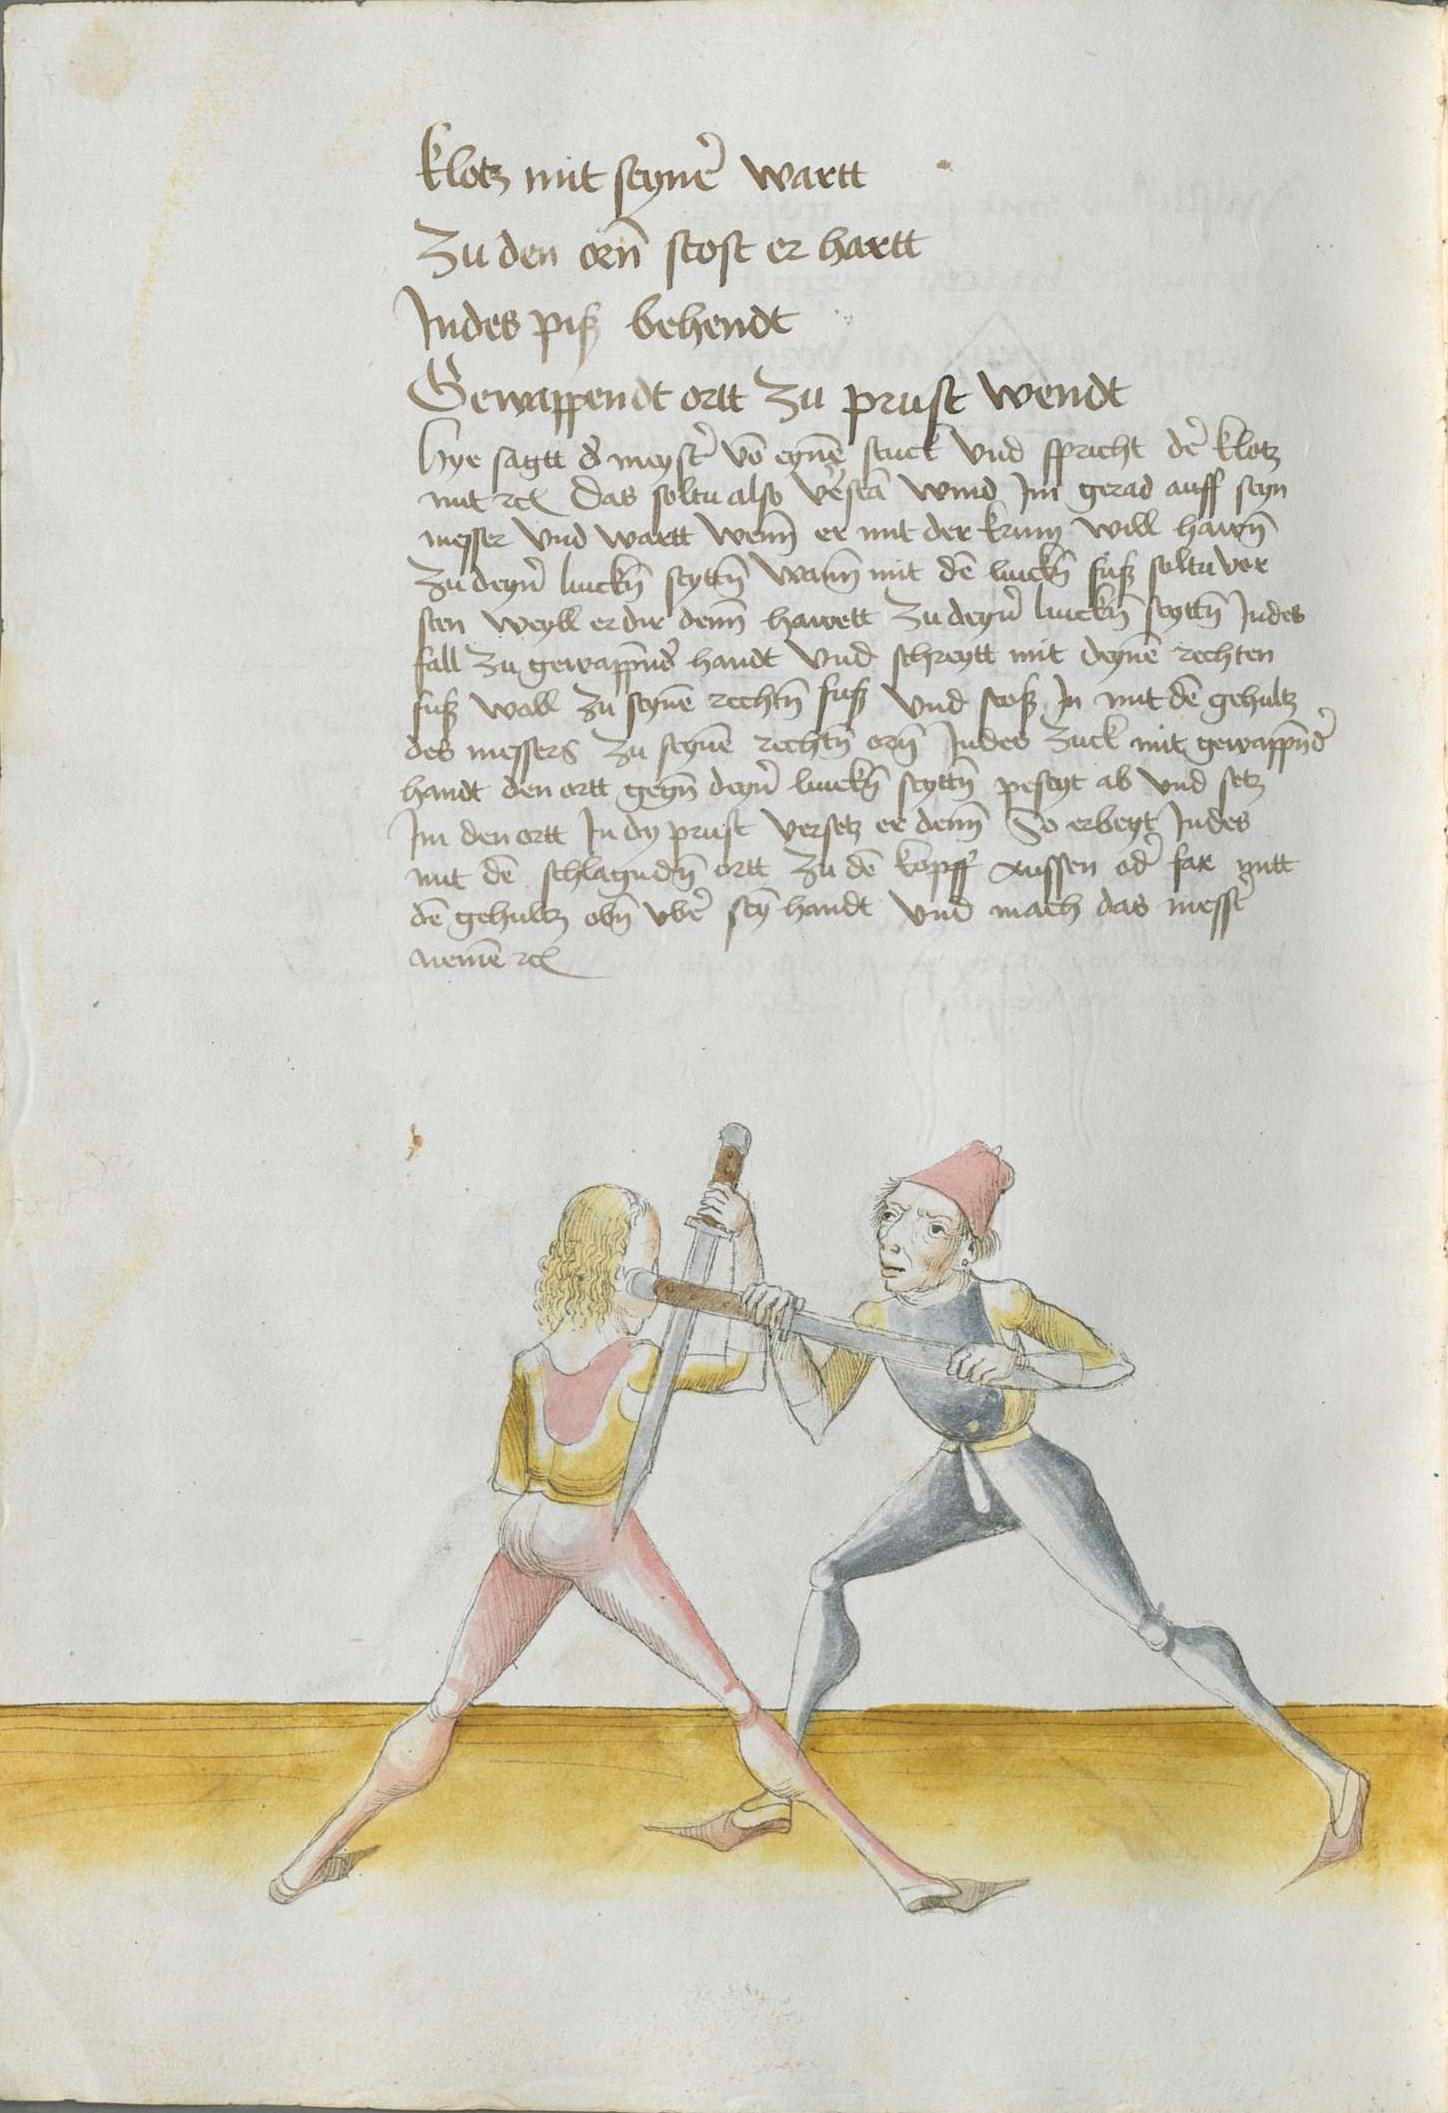 klotz mit seyner̄ wartt
Zu den orn̄ stost er hartt
Indes piß behendt
Gewappendt ortt zu prust wendt
Hye sagtt d̄ meyster̄ vō eynē stuck vnd spricht der̄ klotz
mit ꝛcꝭ Das soltu also v̄stā wind Im gerad auff seyn
messer vnd wartt wenn̄ er mit der krum will hawn̄
zu deyn̄ linckn̄ seyttn̄ wann̄ mit dē linckn̄ fuß soltu vor
sten weyll er dir denn̄ hawett zu deyn̄ linckn̄ seyttn̄ Indes
fall zu gewappnd̄ handt vnd schreytt mit deynē rechten
fuß woll zu seynē rechtn̄ fuß vnd stoß In mit dē gehultz
des messers zu seynē rechtn̄ orn̄ Indes zuck mit gewappnd̄
handt den ortt gegn̄ deyn̄ linckn̄ seyttn̄ peseyt ab vnd setz
Im den ortt In dy prust versetz er denn̄ So erbeyt Indes
mit dē schlagndn̄ ortt zu dē kopff aussen od̄ far mitt
dē gehultz obn̄ vber̄ seyn̄ handt vnd mach das messer̄
nemē ꝛcꝭ